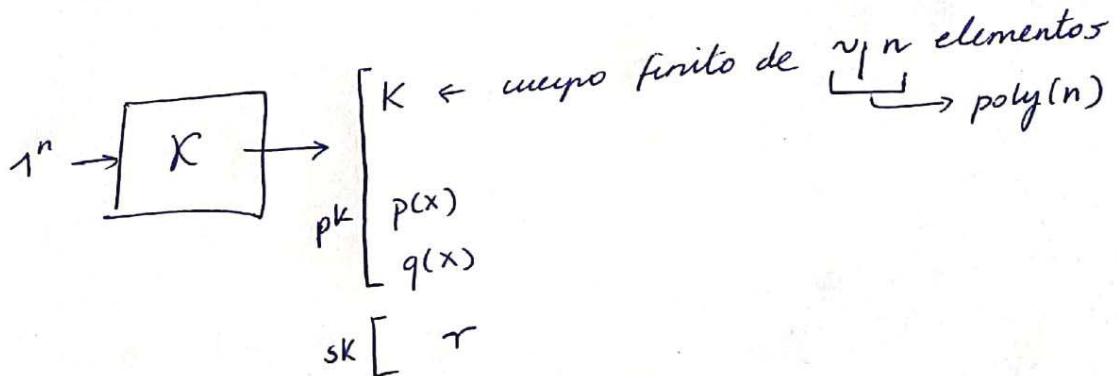 K ← cuerpo finito de ~ n elementos
poly(n)
1ⁿ → K →
pk
p(x)
q(x)
sk [ r